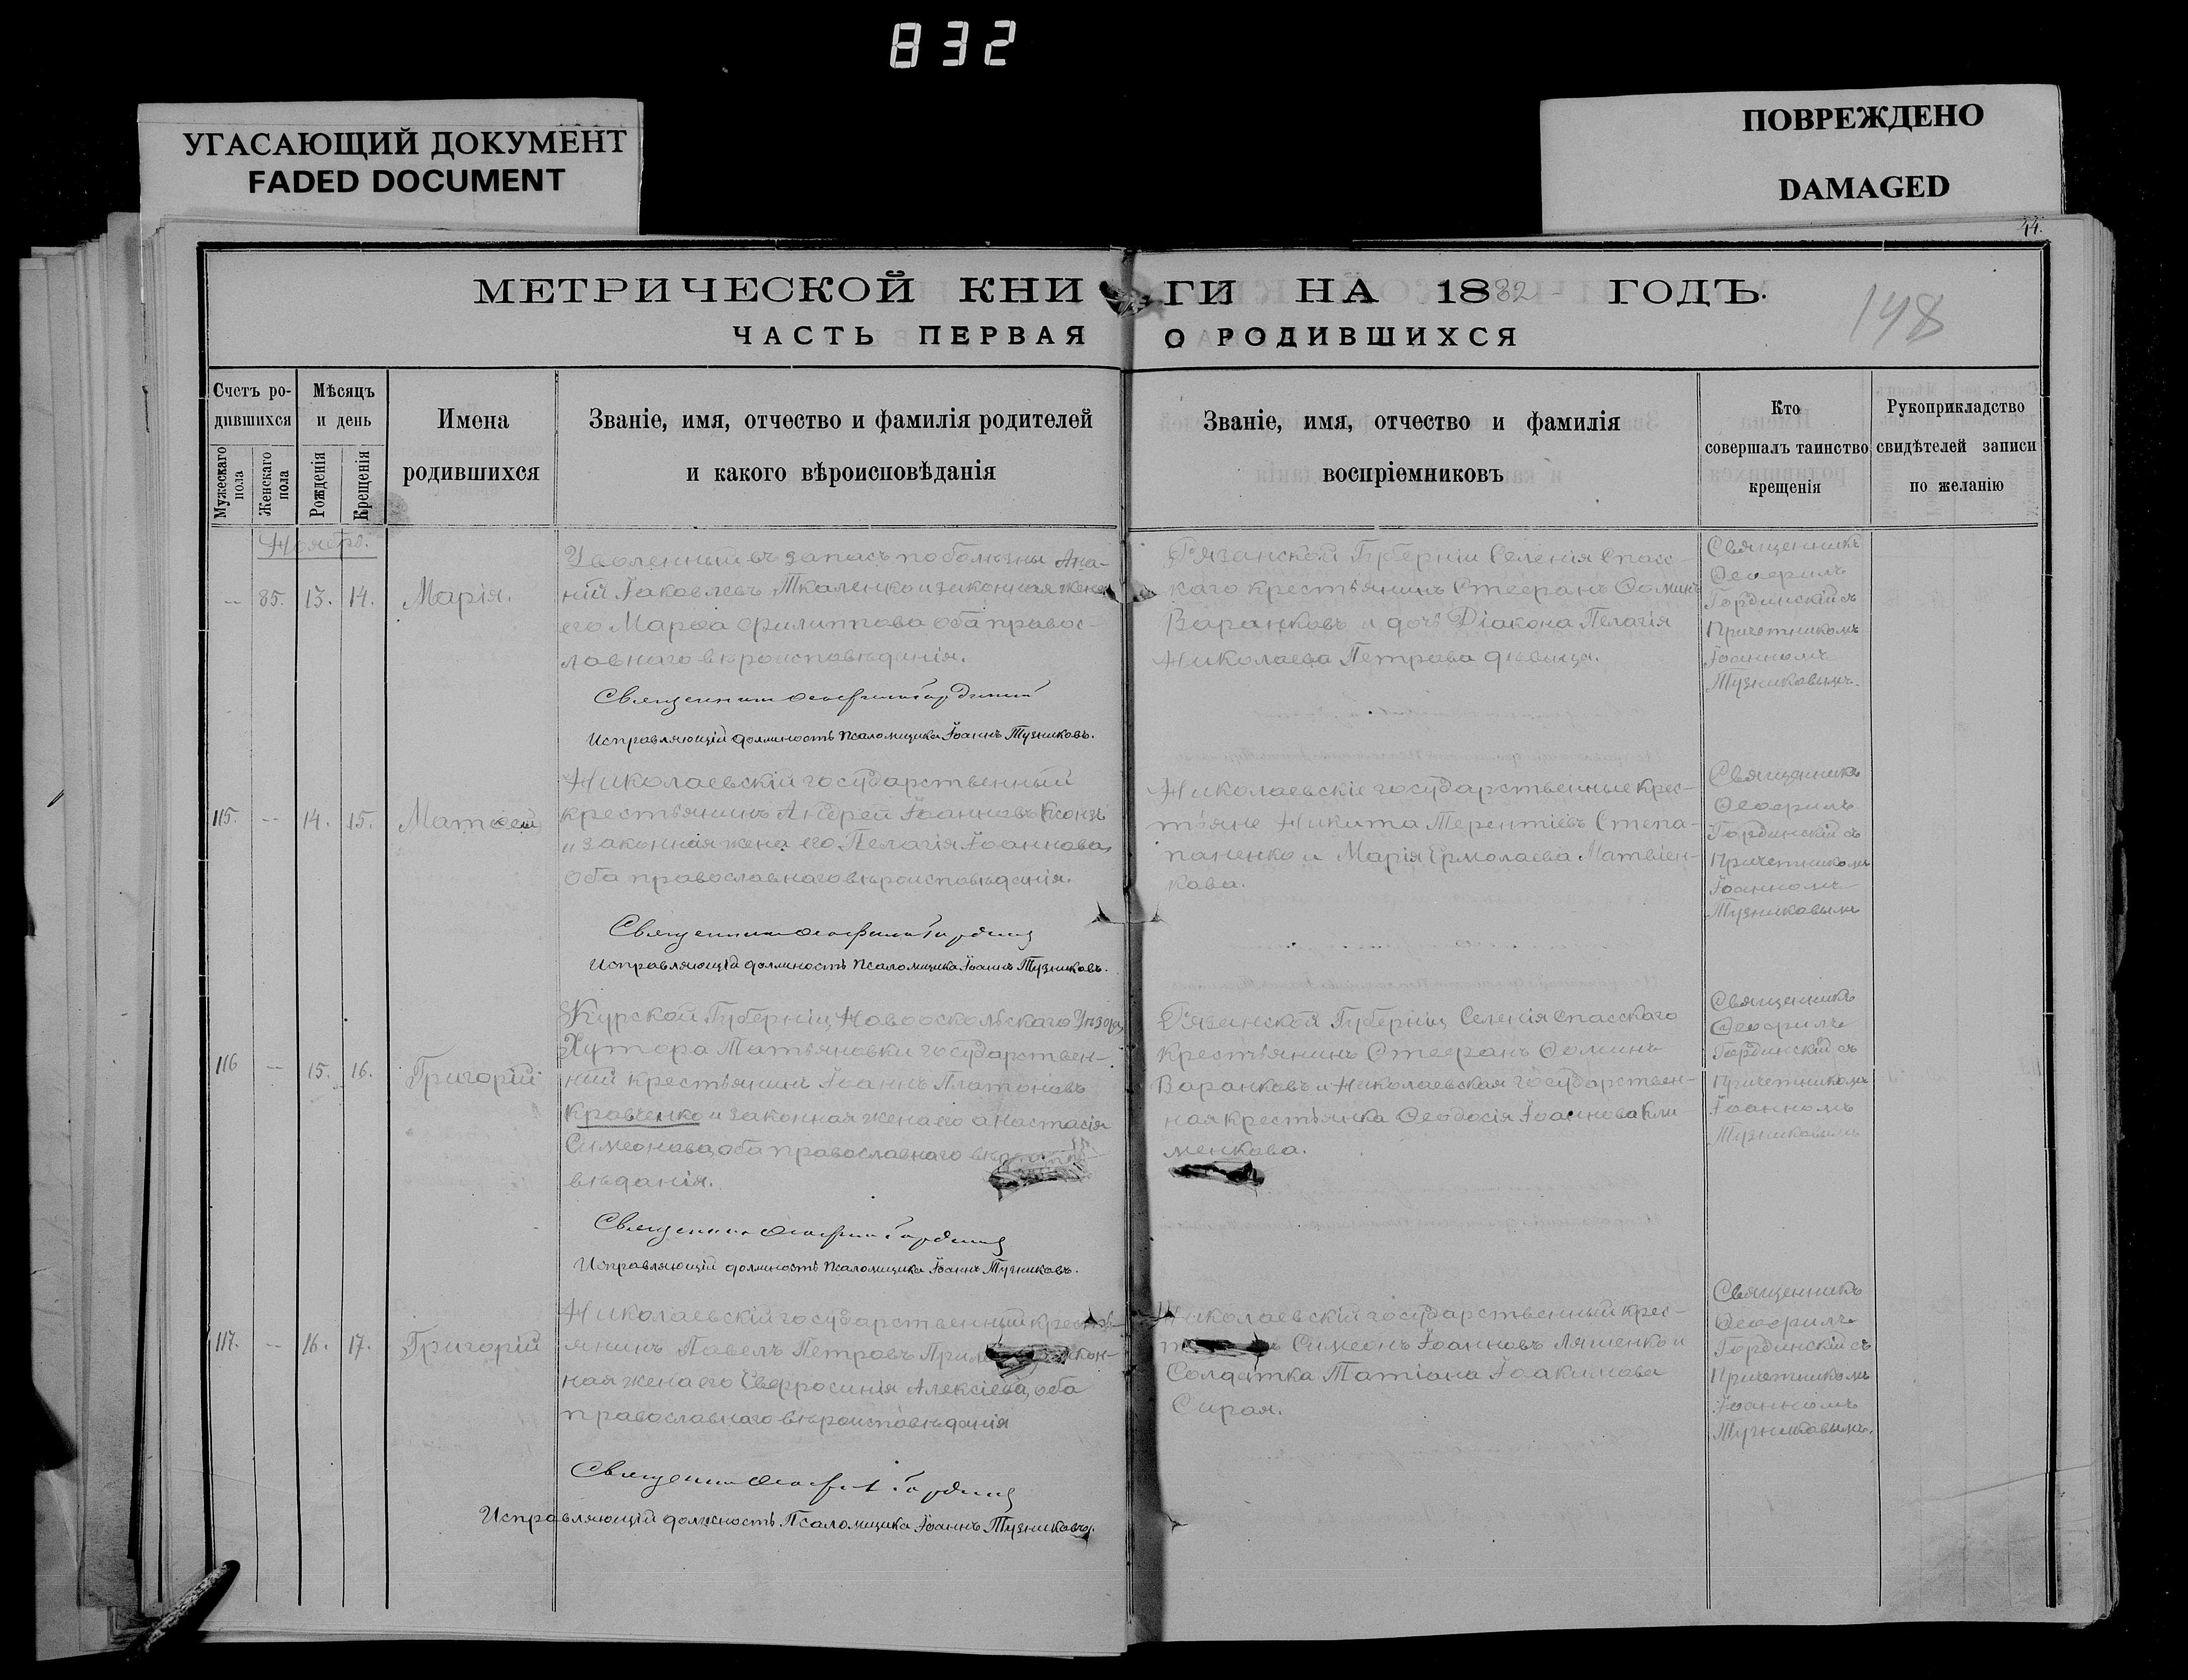 832
УГАСАЮЩИЙ ДОКУМЕНТ
FADED DOCUMENT
ПОВРЕЖДЕНО
DAMAGED
44.
МЕТРИЧЕСКОЙ КНИ ГИ НА 1882 ГОДЪ.
148
ЧАСТЬ ПЕРВАЯ О РОДИВШИХСЯ
Счетъ ро-
дившихся
Мужескаго пола
Женскаго пола
Мѣсяцъ
и день
Рожденія
Крещенія
Имена
родившихся
Званіе, имя, отчество и фамилія родителей
и какого вѣроисповѣданія
Званіе, имя, отчество и фамилія
воспріемниковъ
Кто
совершалъ таинство
крещенія
Рукоприкладство
свидѣтелей записи
по желанію
Ноябрь.
-- 85. 13. 14. Марія.
Уволенный въ запасъ по болѣзни Ана-
ній Іаковлевъ Ткаленко и законная жена
его Марѳа Филиппова оба правос-
лавнаго вѣроисповѣданія.
Священникъ Ѳеофилъ Гординскій
Исправляющій должность Псаломщика Іоаннъ Тузниковъ.
Рязанской Губерніи Селенія Спасс-
каго крестьянинъ Стефанъ Ѳоминъ
Варанковъ и дочь Діакона Пелагія
Николаева Петрова дѣвица.
Священникъ
Ѳеофилъ
Гординскій съ
Причетникомъ
Іоанномъ
Тузниковымъ.
115. -- 14. 15. Матѳей
Николаевскій государственный
крестьянинъ Андрей Іоанновъ Ксонзъ
и законная жена его Пелагія Іоаннова,
оба православнаго вѣроисповѣданія.
Священникъ Ѳеофилъ Гординскій
Исправляющій должность Псаломщика Іоаннъ Тузниковъ.
Николаевскіе государственные крес-
тьяне Никита Терентіевъ Степа-
паненко и Марія Ермолаева Матвіен-
кова.
Священникъ
Ѳеофилъ
Гординскій съ
Причетникомъ
Іоанномъ
Тузниковымъ
116 -- 15. 16. Григорій
Курской Губерніи, Новооскольскаго Уѣзда,
Хутора Матьяновки государствен-
ный крестьянинъ Іоаннъ Платоновъ
Кравченко и законная жена его Анастасія
Симеонова, оба православнаго вѣроиспо-
вѣданія.
Священникъ Ѳеофилъ Гординскій
Исправляющій должность Псаломщика Іоаннъ Тузниковъ.
Рязанской Губерніи, Селенія Спасскаго
Крестьянинъ Стефанъ Ѳоминъ
Варанковъ и Николаевская государствен-
ная крестьянка Ѳеодосія Іоаннова Кли
менкова.
Священникъ
Ѳеофилъ
Гординскій съ
Причетникомъ
Іоанномъ
Тузниковымъ
117. -- 16. 17. Григорій
Николаевскій государственный кресть-
янинъ Павелъ Петровъ
ная жена его Евфросинія Алексіева, оба
православнаго вѣроисповѣданія
Священникъ Ѳеофилъ Гординскій
Исправляющій должность Псаломщика Іоаннъ Тузниковъ.
Николаевскій государственный крес-
Симеонъ Іоанновъ Ляшенко и
Солдатка Татіана Іоакимова
Сирая.
Священникъ
Ѳеофилъ
Гординскій съ
Причетникомъ
Іоанномъ
Тузниковымъ.